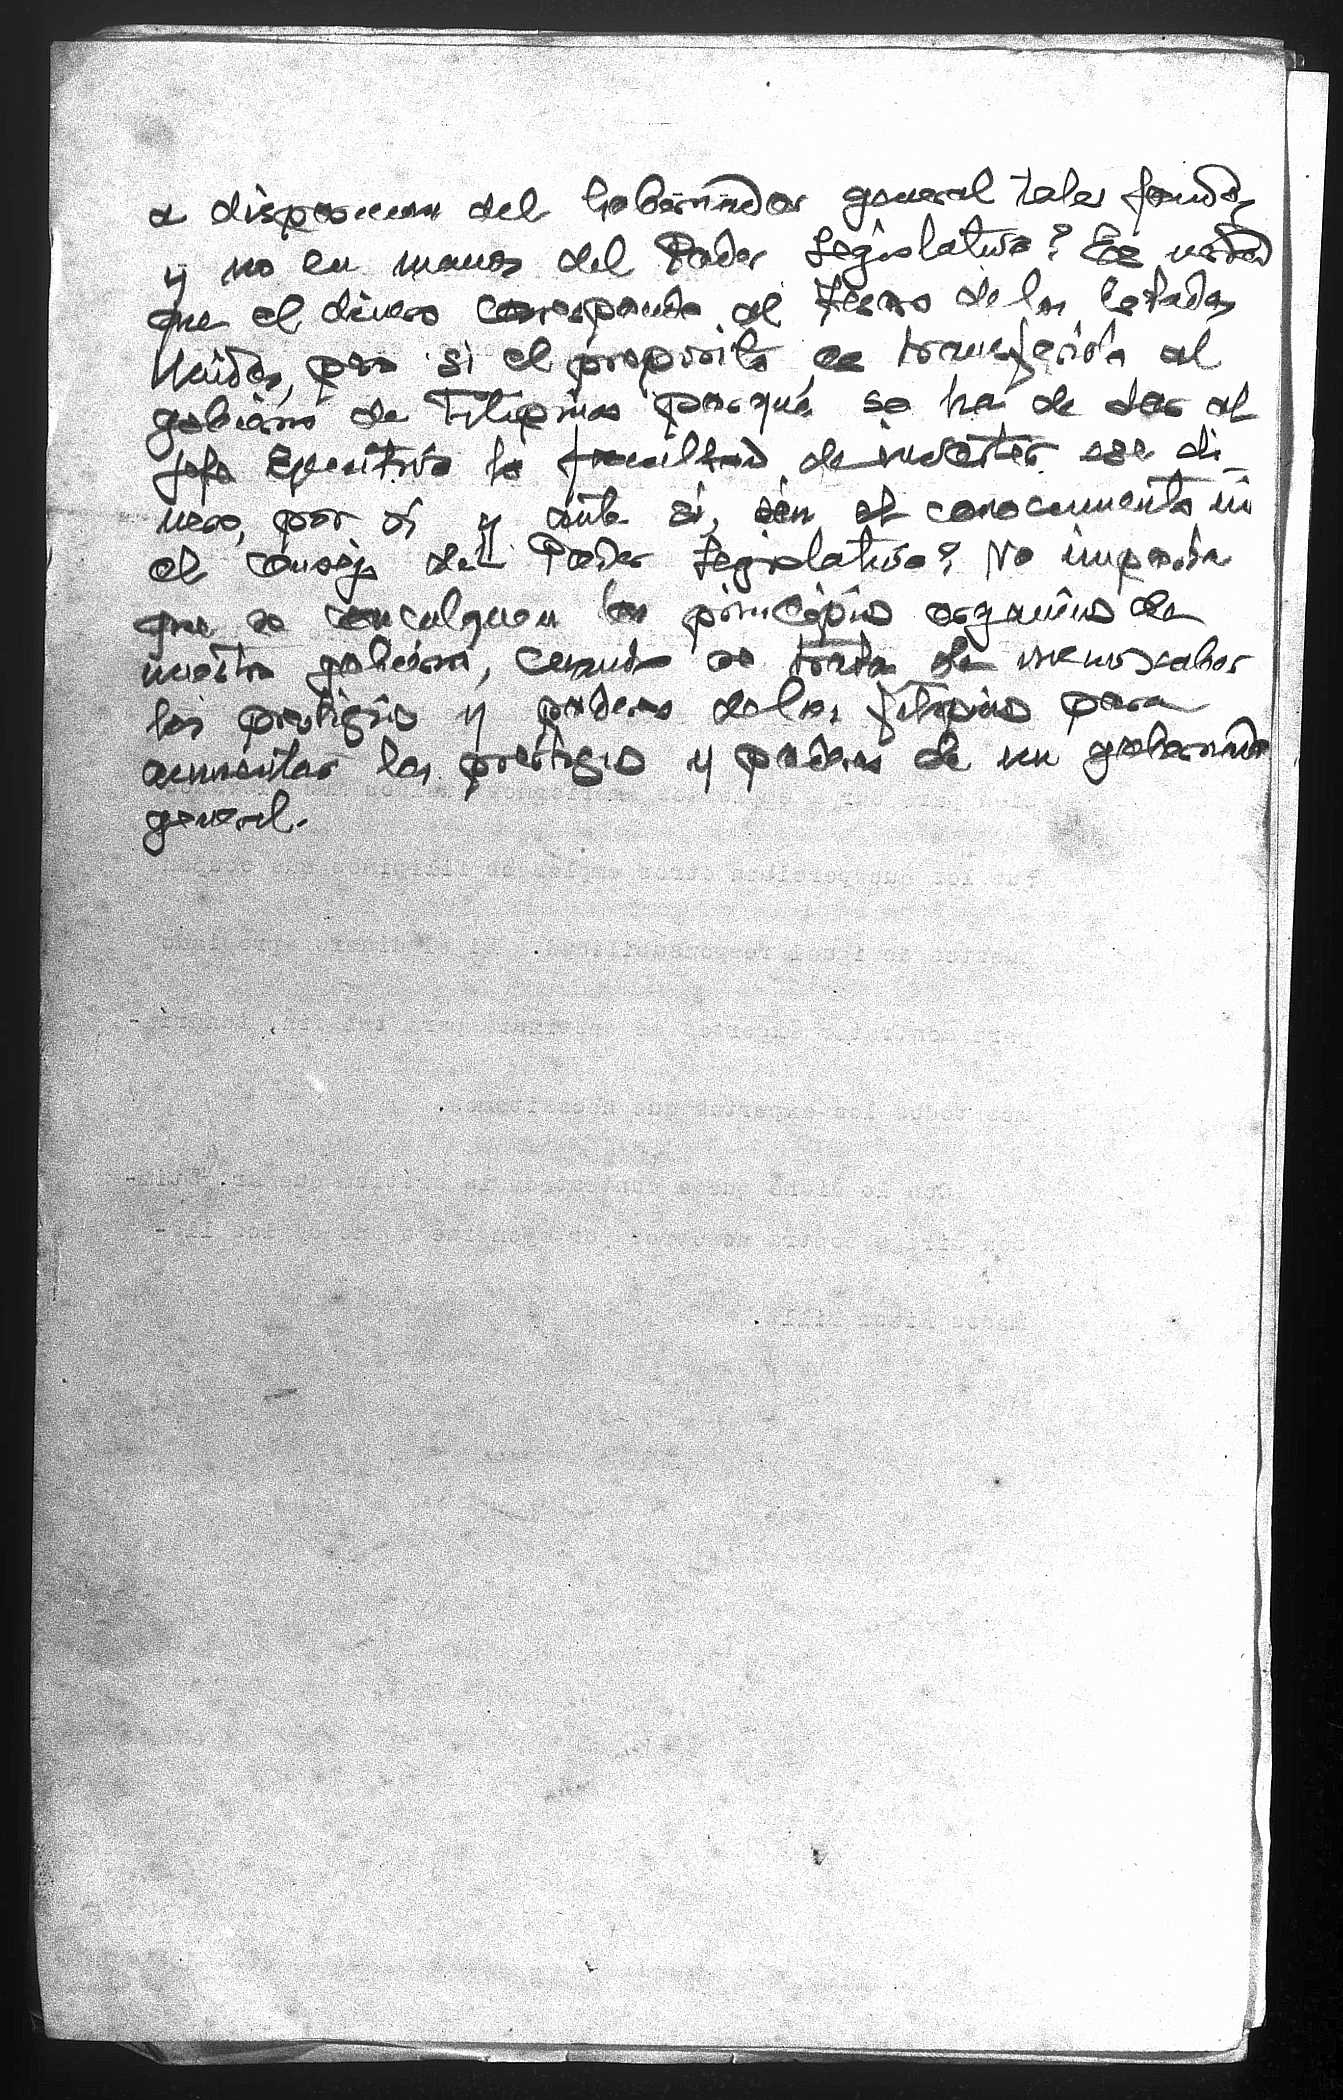 a disposicion del Gobernador general tales fondos
y no en manos del Poder Legislativo? Es verdad
que el dinero corresponde al Tesoro de los Estados
Unidos, pero si el proposito es transferirlo al
gobierno de Filipinas porqué se ha de dar al
Jefe Ejecutivo la facultad de invertir ese di-
nero, por si y ante si, sin el conocimiento ni
el consejo del Poder Legislativo? No importa
que se conculquen los principios organicos de
nuestro gobierno, cuando se trata de menoscabar
los prestigios y poderes de los filipinos para
aumentar los prestigios y poderes de un gobernador
general.